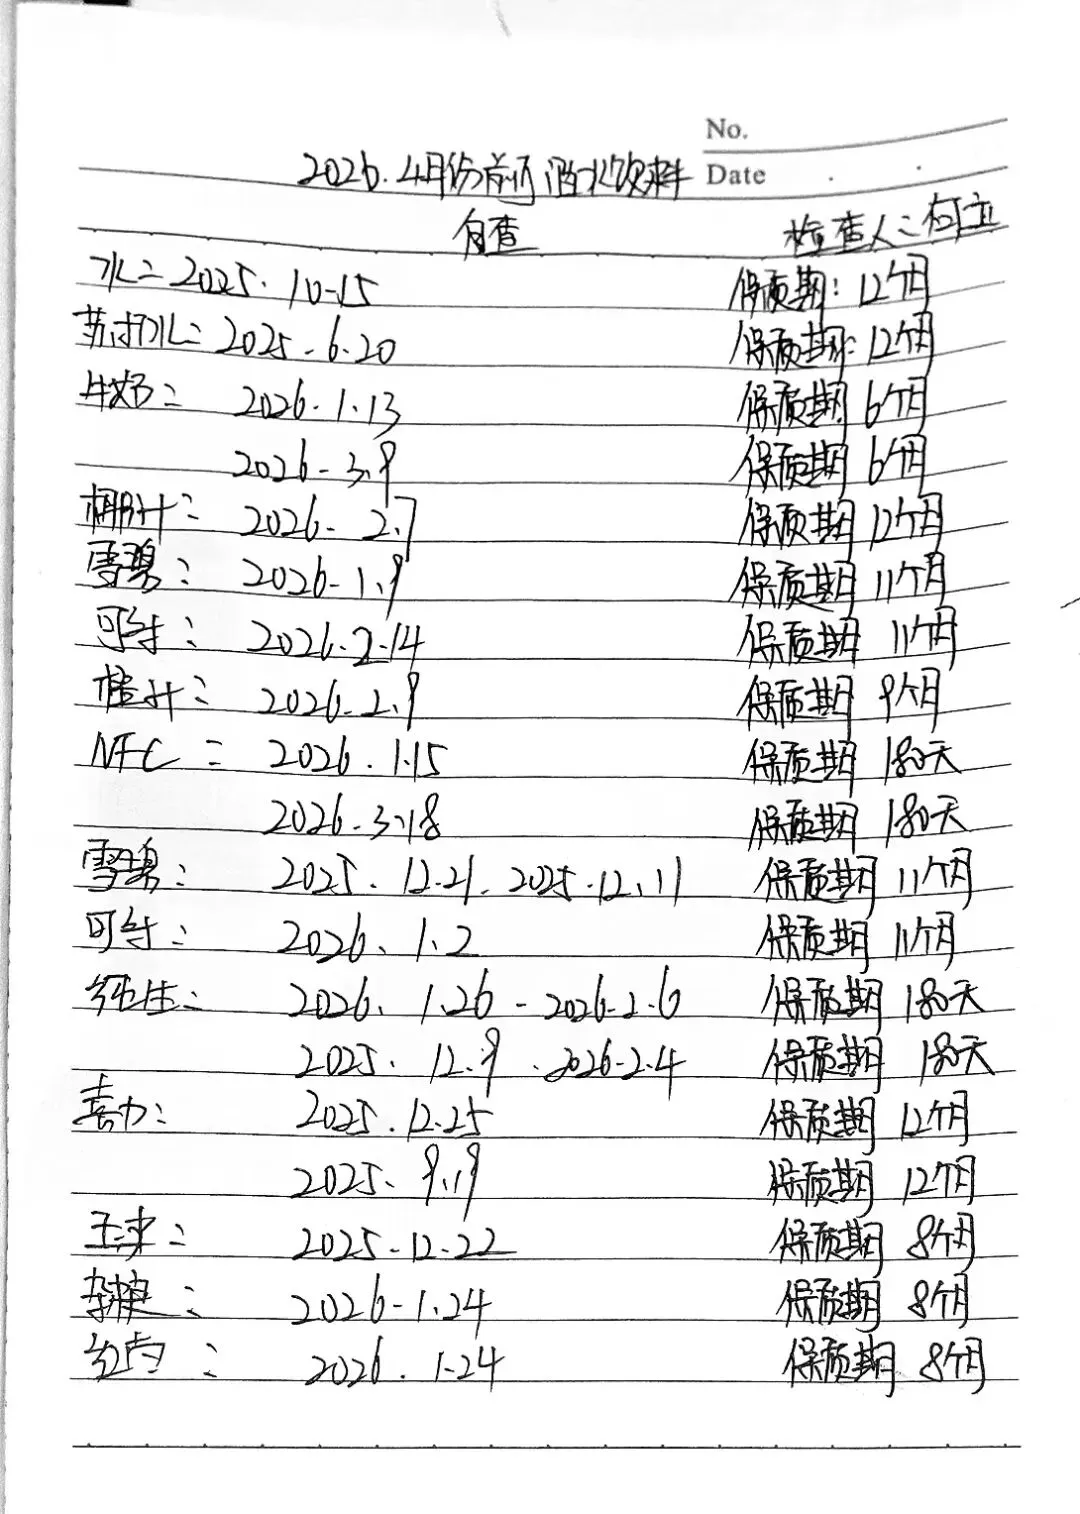 No.
2026.4月份前厅酒水饮料 Date
自查 检查人：何立
水：2025.10-15 保质期：12个月
苏打水：2025-6.20 保质期：12个月
牛奶： 2026.1.13 保质期 6个月
2026-3.9 保质期 6个月
椰汁： 2026-2.7 保质期 12个月
雪碧： 2026-1.9 保质期 11个月
可乐： 2026.2-14 保质期 11个月
橙汁： 2026-2.9 保质期 9个月
NFC： 2026.1.15 保质期 180天
2026-3.18 保质期 180天
雪碧： 2025.12.21. 2025.12.11 保质期 11个月
可乐： 2026.1.2 保质期 11个月
纯生： 2026.1.26-2026-2.6 保质期 180天
2025.12.9.2026-2.4 保质期 180天
喜力： 2025.12.25 保质期 12个月
2025.9.19 保质期 12个月
2025-12-22 保质期 8个月
2026-1.24 保质期 8个月
2026.1-24 保质期 8个月